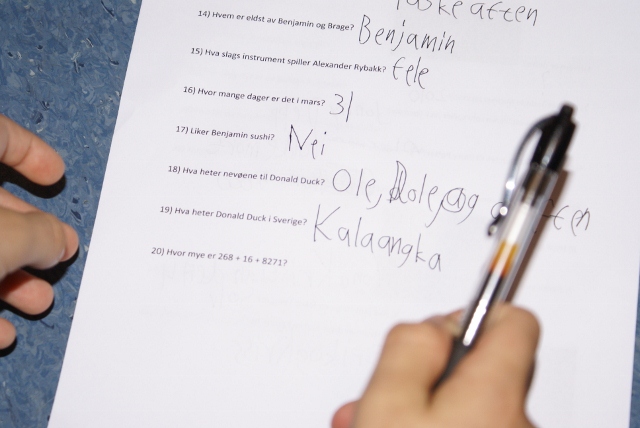 påskeaften
14) Hvem er eldst av Benjamin og Brage? Benjamin
15) Hva slags instrument spiller Alexander Rybakk? fele
16) Hvor mange dager er det i mars? 31
17) Liker Benjamin sushi? Nei
18) Hva heter nevøene til Donald Duck? Ole, Dole, og
19) Hva heter Donald Duck i Sverige? Kalaangka
20) Hvor mye er 268 + 16 + 8271?